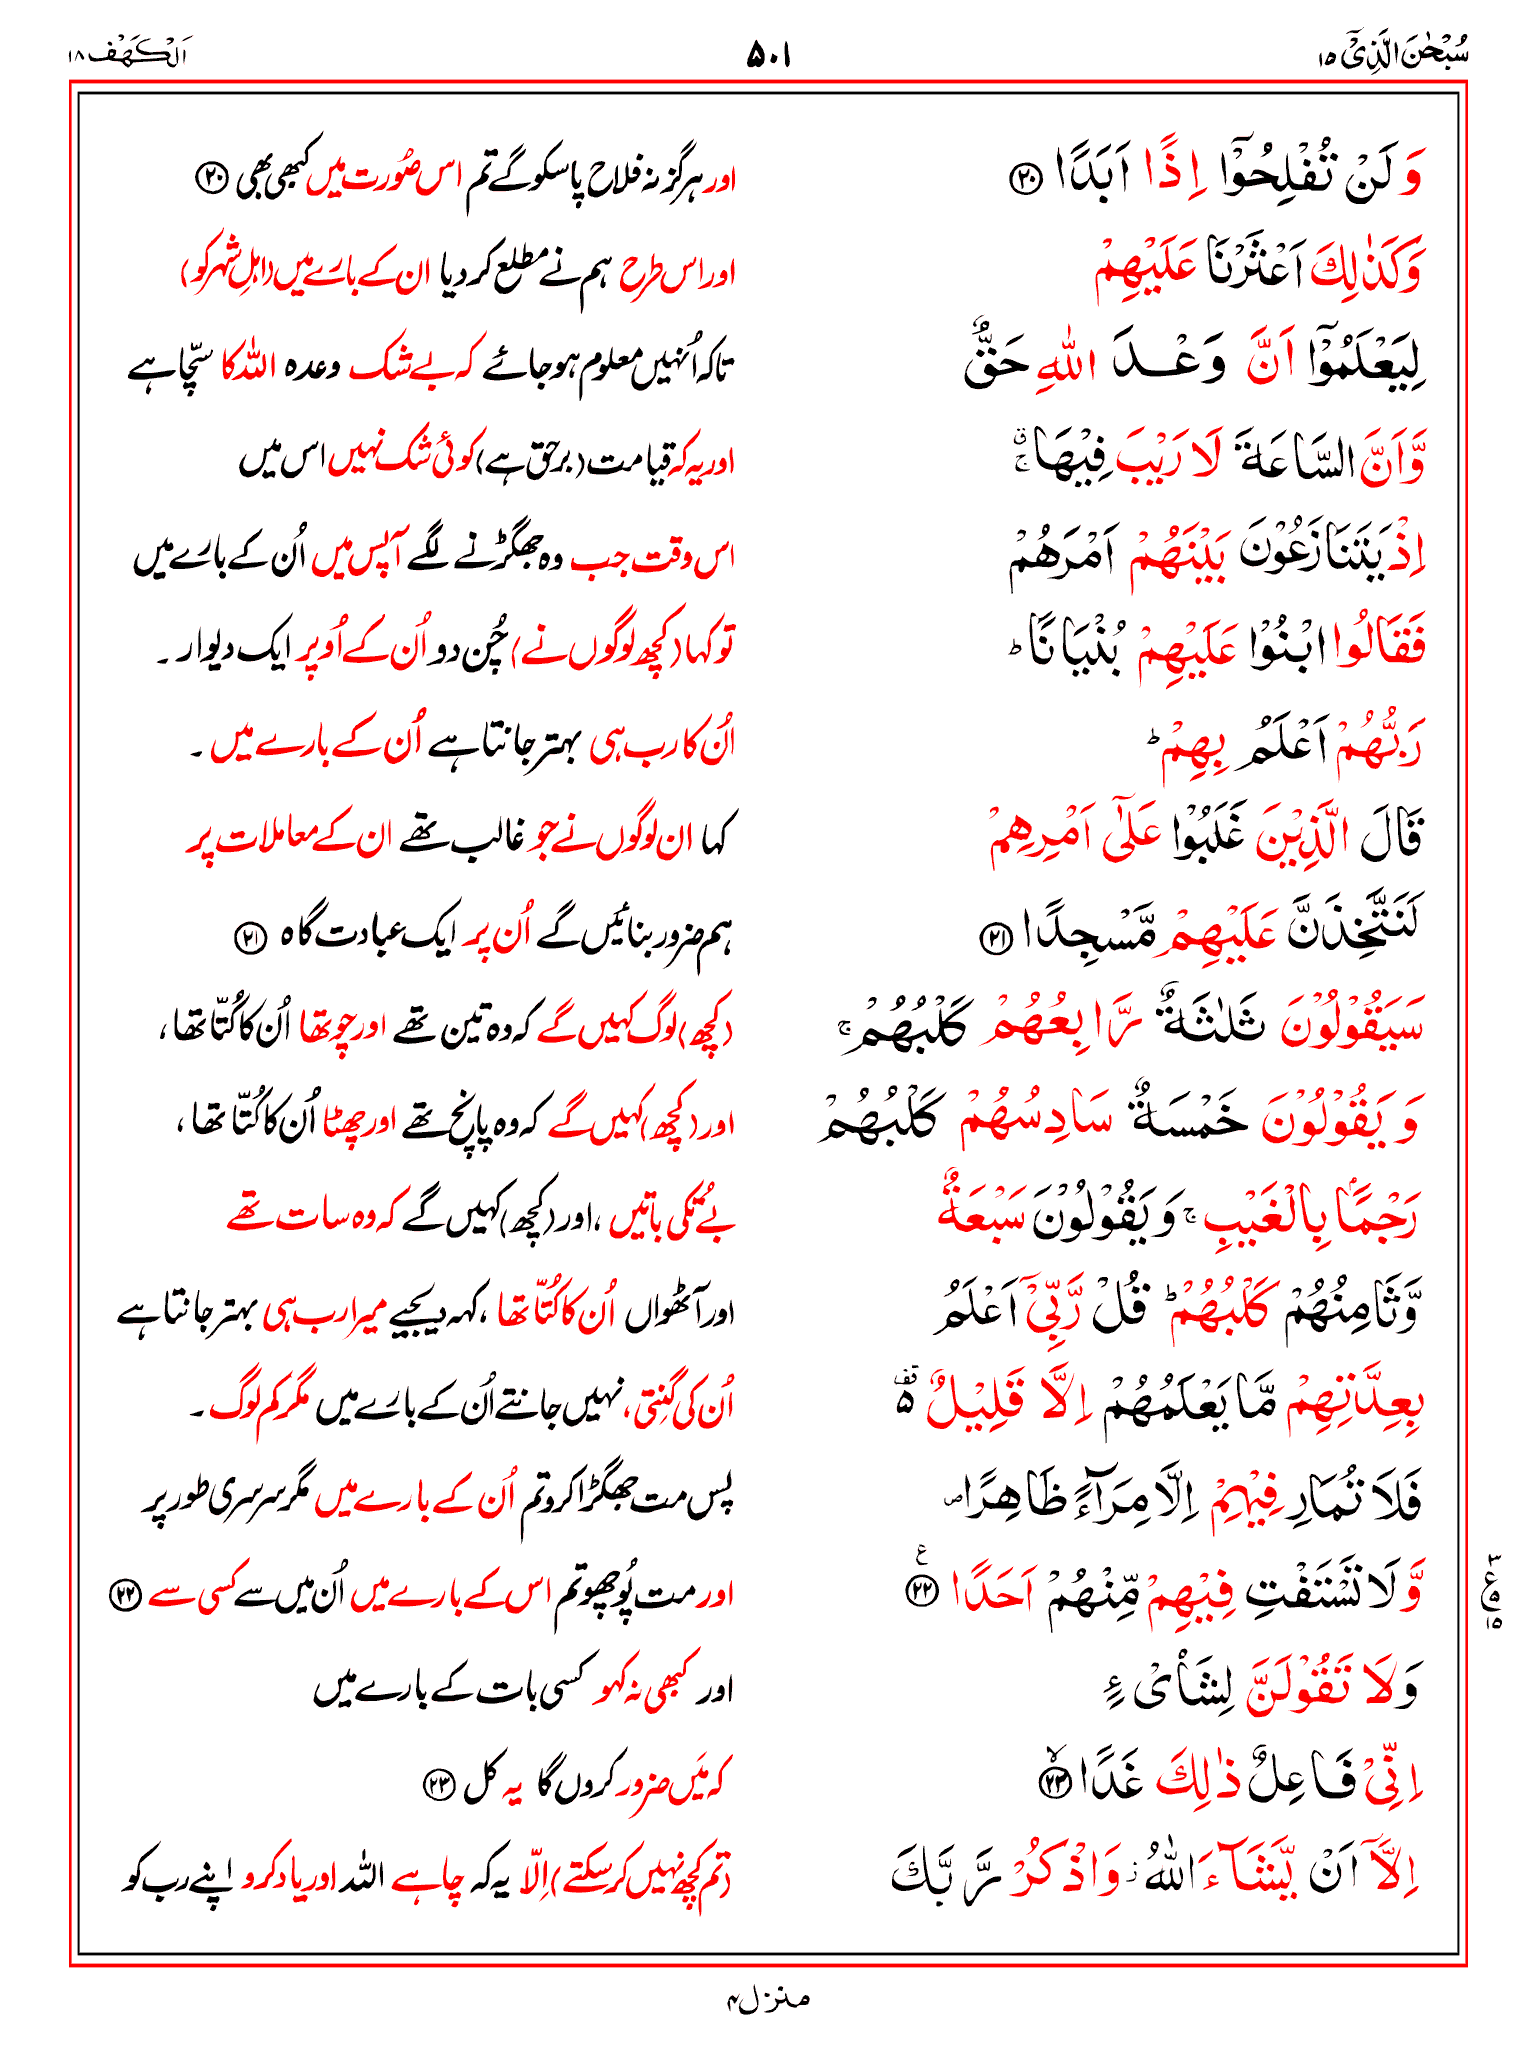 سُبْحٰنَ الَّذِیْۤ ۱۵ ۵۰۱ اَلْکَهْف ۱۸
وَ لَنْ تُفْلِحُوْۤا اِذًا اَبَدًا ۲۰ اور ہرگز نہ فلاح پا سکو گے تم اس صُورت میں کبھی بھی ۲۰
وَ كَذٰلِكَ اَعْثَرْنَا عَلَیْهِمْ اور اس طرح ہم نے مطلع کر دیا ان کے بارے میں (اہلِ شہر کو)
لِیَعْلَمُوْۤا اَنَّ وَعْدَ اللّٰهِ حَقٌّ تاکہ اُنہیں معلوم ہو جائے کہ بے شک وعدہ اللہ کا سچّا ہے
وَّ اَنَّ السَّاعَةَ لَا رَیْبَ فِیْهَا ۚۗ اور یہ کہ قیامت (برحق ہے) کوئی شک نہیں اس میں
اِذْ یَتَنَازَعُوْنَ بَیْنَهُمْ اَمْرَهُمْ اس وقت جب وہ جھگڑنے لگے آپس میں اُن کے بارے میں
فَقَالُوا ابْنُوْا عَلَیْهِمْ بُنْیَانًا ؕ تو کہا (کچھ لوگوں نے) چُن دو اُن کے اُوپر ایک دیوار ۔
رَبُّهُمْ اَعْلَمُ بِهِمْ ؕ اُن کا رب ہی بہتر جانتا ہے اُن کے بارے میں ۔
قَالَ الَّذِیْنَ غَلَبُوْا عَلٰۤی اَمْرِهِمْ کہا ان لوگوں نے جو غالب تھے ان کے معاملات پر
لَنَتَّخِذَنَّ عَلَیْهِمْ مَّسْجِدًا ۲۱ ہم ضرور بنائیں گے اُن پر ایک عبادت گاہ ۲۱
سَیَقُوْلُوْنَ ثَلٰثَةٌ رَّابِعُهُمْ كَلْبُهُمْ ۚ (کچھ) لوگ کہیں گے کہ وہ تین تھے اور چوتھا اُن کا کُتّا تھا ،
وَ یَقُوْلُوْنَ خَمْسَةٌ سَادِسُهُمْ كَلْبُهُمْ اور (کچھ) کہیں گے کہ وہ پانچ تھے اور چھٹا اُن کا کُتّا تھا ،
رَجْمًۢا بِالْغَیْبِ ۚ وَ یَقُوْلُوْنَ سَبْعَةٌ بے تُکی باتیں ، اور (کچھ) کہیں گے کہ وہ سات تھے
وَّ ثَامِنُهُمْ كَلْبُهُمْ ؕ قُلْ رَّبِّیْۤ اَعْلَمُ اور آٹھواں اُن کا کُتّا تھا ، کہہ دیجیے میرا رب ہی بہتر جانتا ہے
بِعِدَّتِهِمْ مَّا یَعْلَمُهُمْ اِلَّا قَلِیْلٌ ۵ قف اُن کی گنتی ، نہیں جانتے اُن کے بارے میں مگر کم لوگ ۔
فَلَا تُمَارِ فِیْهِمْ اِلَّا مِرَآءً ظَاهِرًا ۪ پس مت جھگڑا کرو تم اُن کے بارے میں مگر سرسری طور پر
وَّ لَا تَسْتَفْتِ فِیْهِمْ مِّنْهُمْ اَحَدًا ۲۲ ع اور مت پُوچھو تم اس کے بارے میں اُن میں سے کسی سے ۲۲
۳ ع ۵ ۱۵
وَ لَا تَقُوْلَنَّ لِشَایْءٍ اور کبھی نہ کہو کسی بات کے بارے میں
اِنِّیْ فَاعِلٌ ذٰلِكَ غَدًا ۲۳ لا کہ مَیں ضرور کروں گا یہ کل ۲۳
اِلَّاۤ اَنْ یَّشَآءَ اللّٰهُ ؗ وَ اذْكُرْ رَّبَّكَ (تم کچھ نہیں کر سکتے) اِلّا یہ کہ چاہے اللہ اور یاد کرو اپنے رب کو
منزل ۴